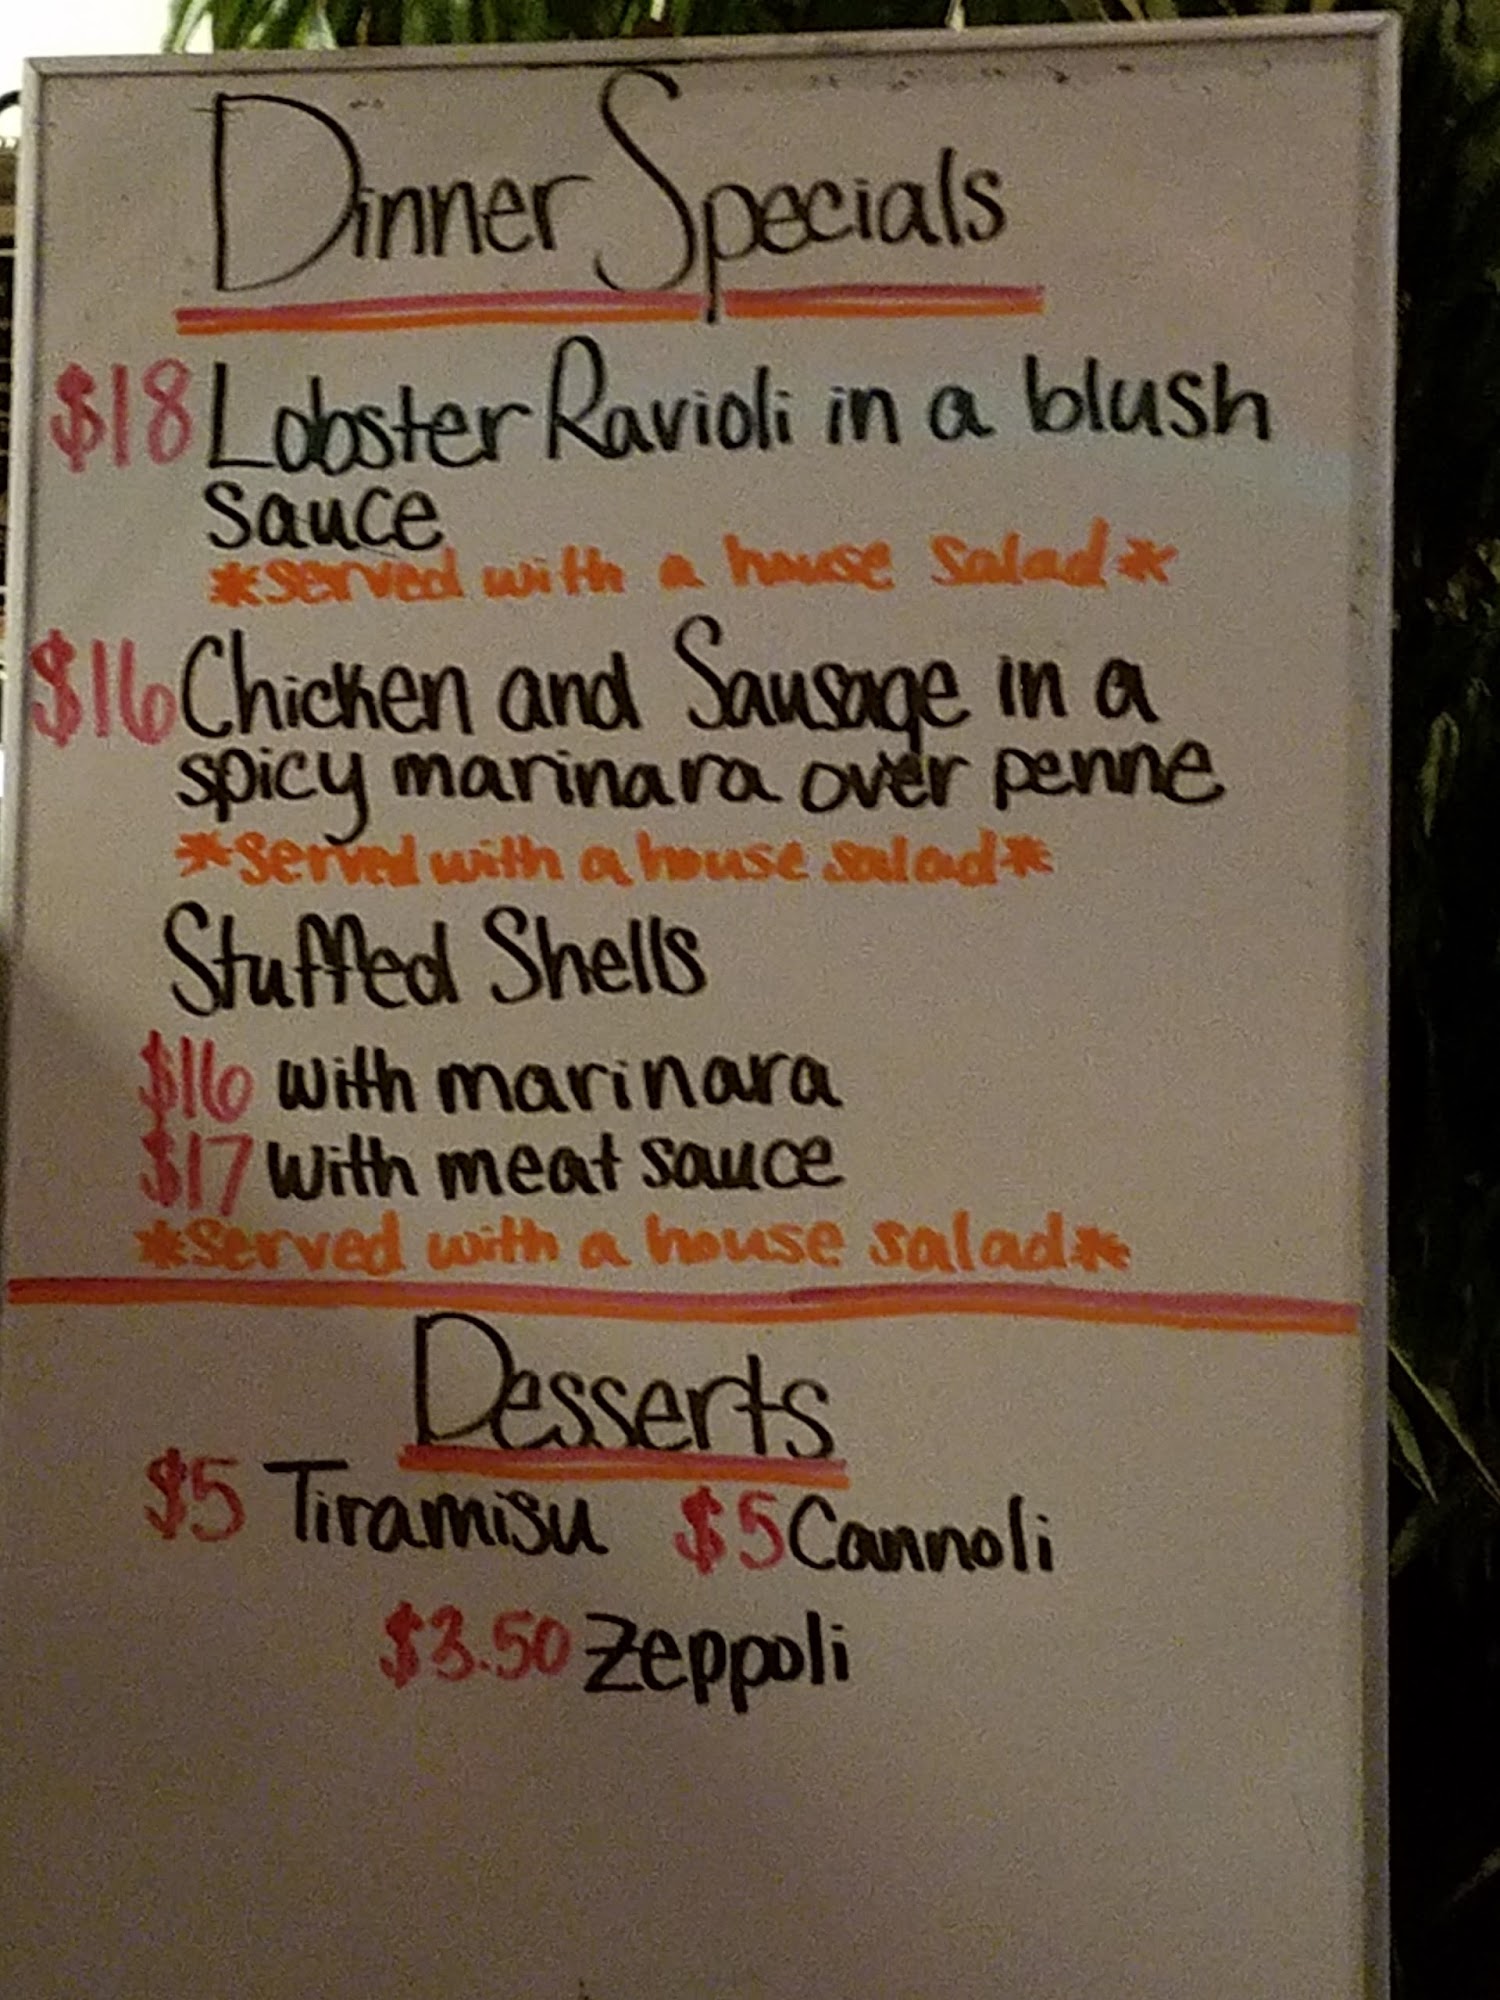 Dinner Specials
$18 Lobster Ravioli in a blush
sauce
*served with a house salad*
$16 Chicken and Sausage in a
spicy marinara over penne
*Served with a house salad*
Stuffed Shells
$16 with marinara
$17 with meat sauce
*Served with a house salad*
Desserts
$5 Tiramisu $5 Cannoli
$3.50 Zeppoli